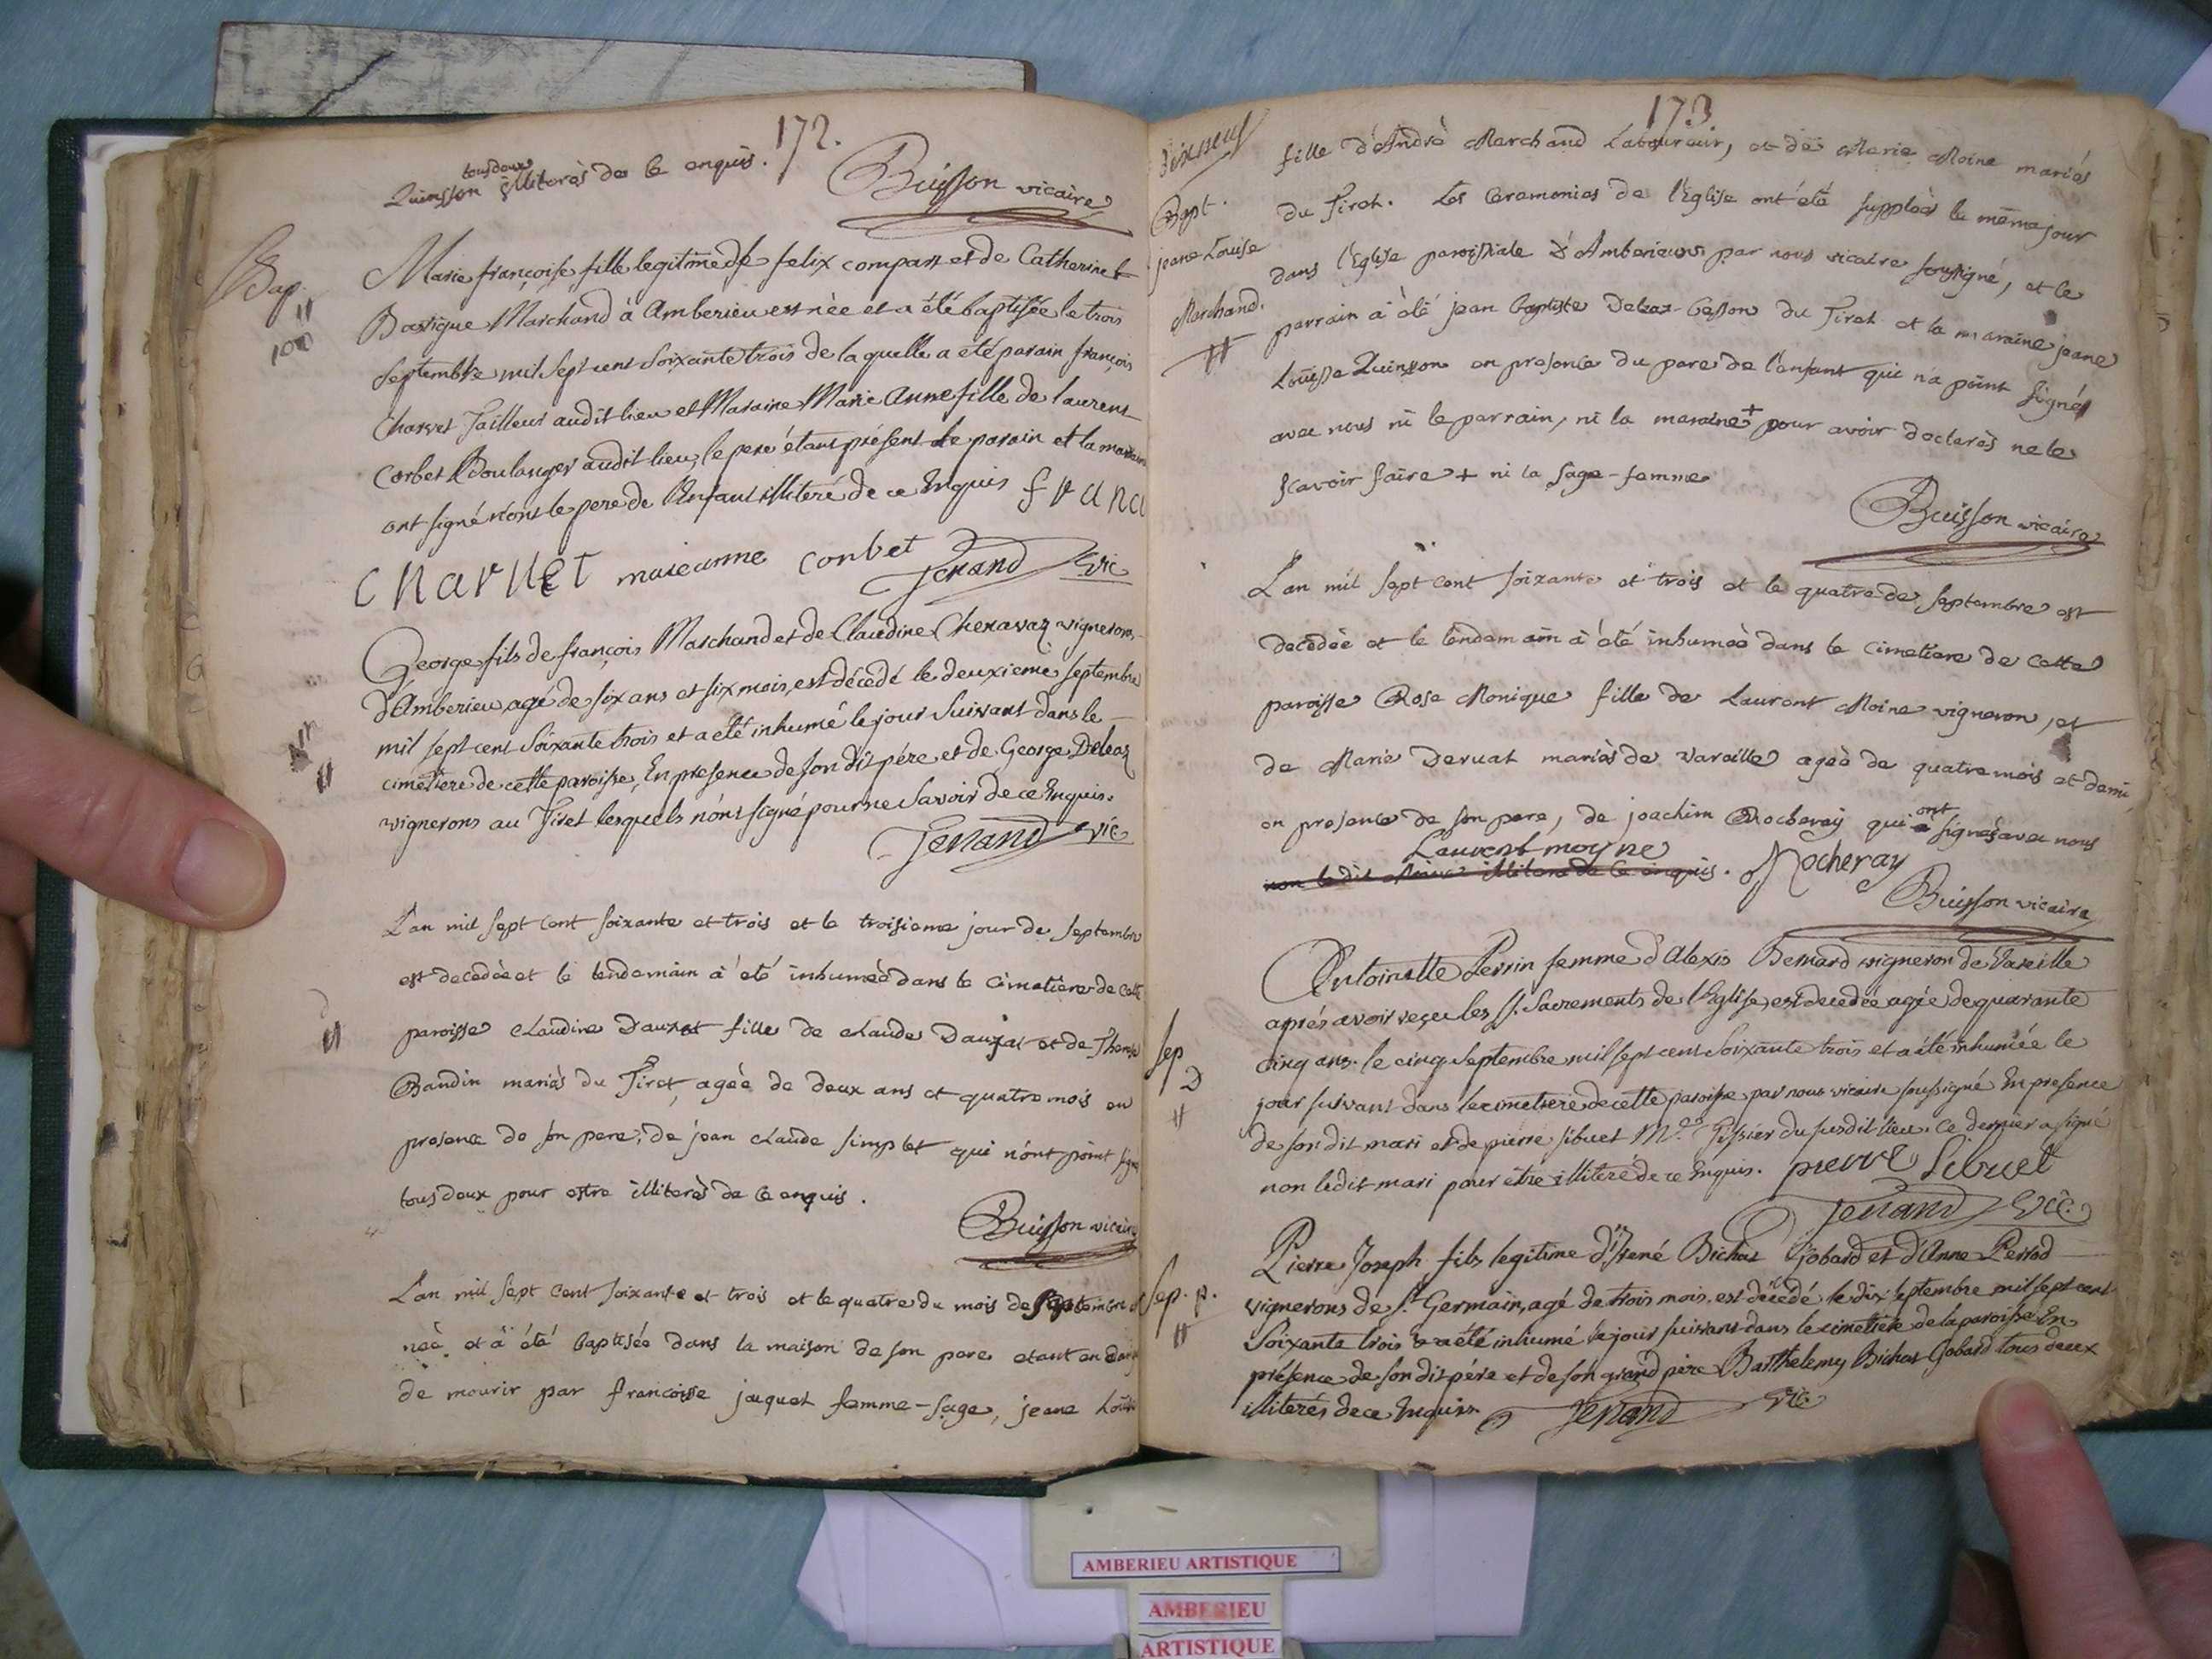 172.
tous deux
Quinsson illiterés de ce enquis.
Buisson vicaire
Bap.
100
Marie françoise fille legitime de felix compars et de Catherine
Bossigue Marchand à Amberieu est nèe et a été baptisée le trois
septembre mil sept cent soixante trois de laquelle a eté parain françois
Charvet Tailleur audit lieu et Maraine Marie Anne fille de laurent
Corbet Boulanger audit lieu, le pere étant présent le parain et la maraine
ont signé non le pere de l'Enfant illiteré de ce Enquis franc
CHARVET marieanne corbet
Jenand vic
George fils de françois Marchand et de Claudine Cheravaz vignerons
d'Amberieu, agé de six ans et six mois, est décédé le deuxieme septembre
mil sept cent soixante trois et a eté inhumé le jour suivant dans le
cimetiere de cette paroisse, En presence de son dit pére et de George Deleaz
vignerons au Tiret lesquels n'ont signé pour ne savoir de ce Enquis.
Jenand vic
L'an mil sept cent soixante et trois et le troisieme jour de septembre
est decedèe et le lendemain à eté inhumeè dans le cimetiere de cette
paroisse claudine Dauzat fille de claude Dauzat et de Therese
Baudin mariès du Tiret, agèe de deux ans et quatre mois en
presence de son pere, de jean claude simplet qui n'ont point signé
tous deux pour estre illiterès de ce enquis.
Buisson vicaire
L'an mil sept cent soixante et trois et le quatre du mois de septembre est
neè et à été baptisée dans la maison de son pere etant en danger
de mourir par francoise jaquet femme-sage, jeane Louise
173
dixneuf
Bapt.
jeane Louise
Marchand.
fille d'André Marchand Laboureur, et de Marie Moine mariés
du Tiret. Les Ceremonies de l'Eglise ont été suppleès le même jour
dans l'Eglise paroissiale d'Amberieux par nous vicaire soussigné, et le
parrain à été jean baptiste Deleaz-besson du Tiret et la maraine jeane
Louïse Quinsson en presence du pere de l'enfant qui n'a point signé
avec nous ni le parrain, ni la maraine + pour avoir declarès ne le
scavoir faire + ni la sage-femme
Buisson vicaire
L'an mil sept cent soixante et trois et le quatre de septembre est
decedèe et le lendemain à eté inhumeè dans le cimetiere de cette
paroisse Rose Monique fille de Laurent Moine vigneron, et
de Marie Dervat mariès de Vareille ageè de quatre mois et demi
en presence de son pere, de joachim Rocheray qui ont signés avec nous
Laurent moyne
non le dit Moine illiteré de ce enquis. Rocheray
Buisson vicaire
Antoinette Perrin femme d'Alexis Bernard vigneron de Vareille
aprés avoir reçu les SS. Sacrements de l'Eglise, est decedée agée de quarante
Sep
cinq ans le cinq septembre mil sept cent soixante trois et a été inhumée le
jour suivant dans le cimetiere de cette paroisse par nous vicaire soussigné En presence
de son dit mari et de pierre sibuet Md. Tissier du susdit lieu. Ce dernier a signé
non ledit mari pour être illiteré de ce Enquis. pierre Sibuet
Jenand Vic.
Sep. p.
Pierre Joseph fils legitime d'Irené Bichat Gobard et d'Anne Perrod
vignerons de St. Germain, agé de trois mois, est decédé le dix septembre mil sept cent
soixante trois & a été inhumé le jour suivant dans le cimetiere de la paroisse En
présence de son dit pére et de son grand pére Barthelemy Bichat Gobard tous deux
illiterés de ce Enquis.
Jenand Vic.
AMBERIEU ARTISTIQUE
AMBERIEU
ARTISTIQUE